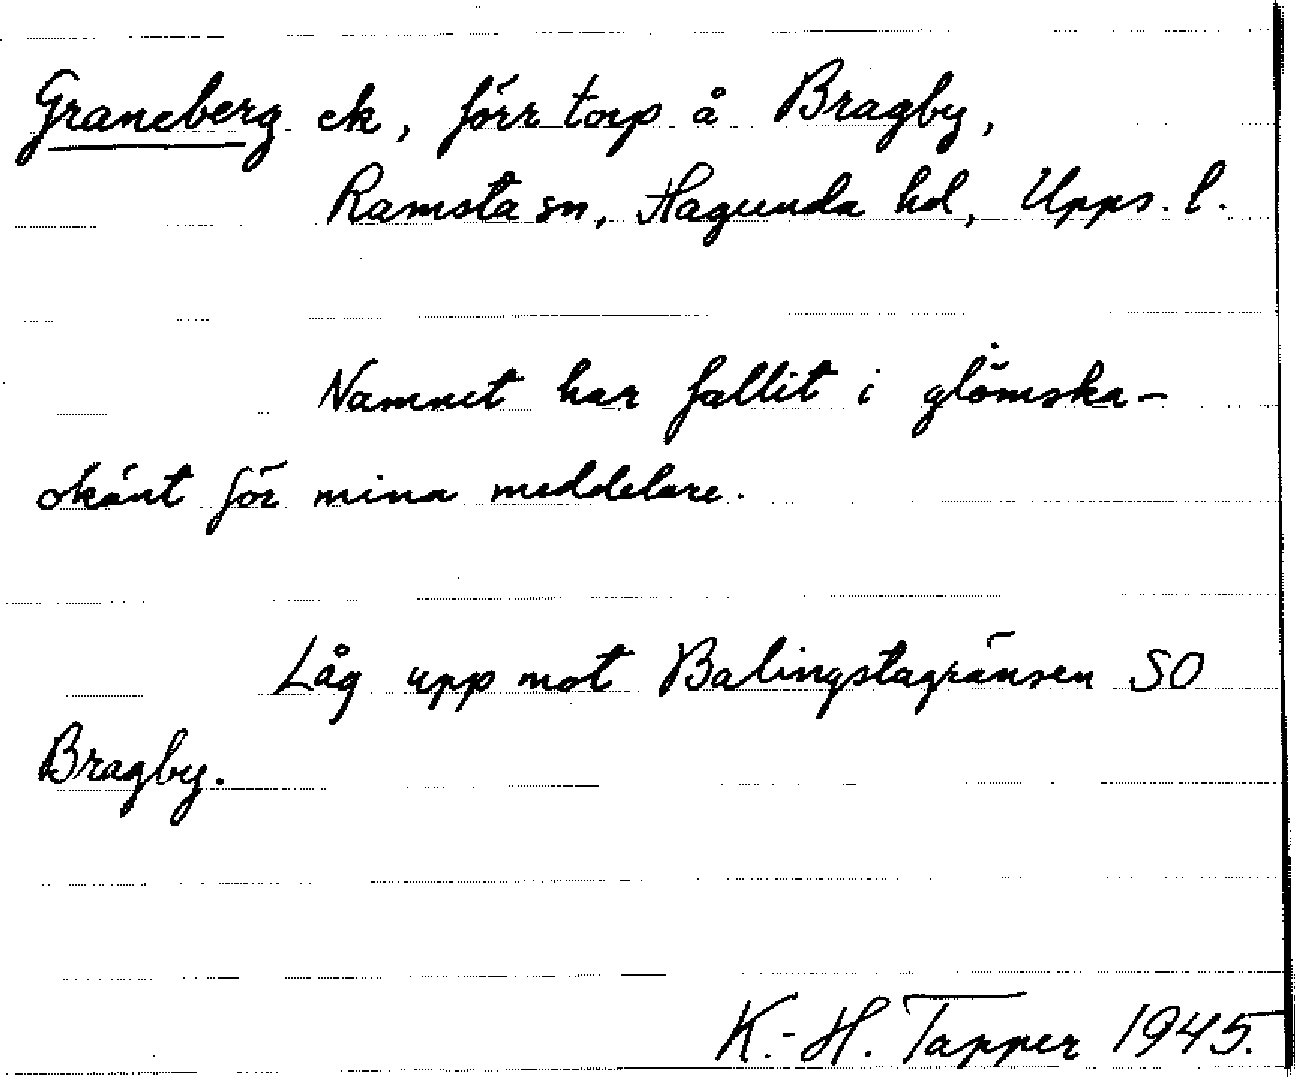 Graneberg ek, förr torp å Bragby,
Ramsta sn, Hagunda hd, Upps. l.
Namnet har fallit i glömska -
okänt för mina meddelare.
Låg upp mot Balingstagränsen SO
Bragby.
K.-H. Tapper 1945.